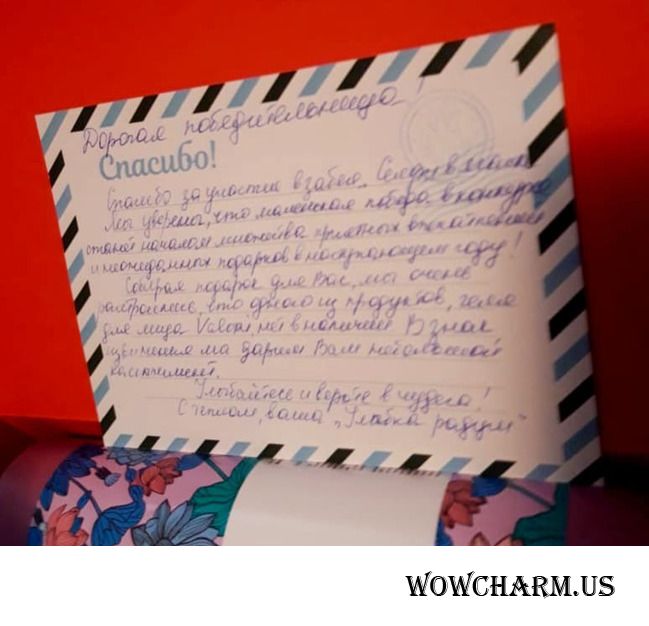 Дорогая победительница!
Спасибо!
Спасибо за участие в забеге
Мы уверены, что маленькая победа в конкурсе
станет началом множества приятных впечатлений
и неожиданных подарков в наступающем году!
Собирая подарок для Вас, мы очень
расстроились, что одного из продуктов, геля
для лица Valori нет в наличии. В знак
извинения мы дарим Вам небольшой
комплимент.
Улыбайтесь и верьте в чудеса!
С теплом, ваша „Улыбка радуги"
WOWCHARM.US